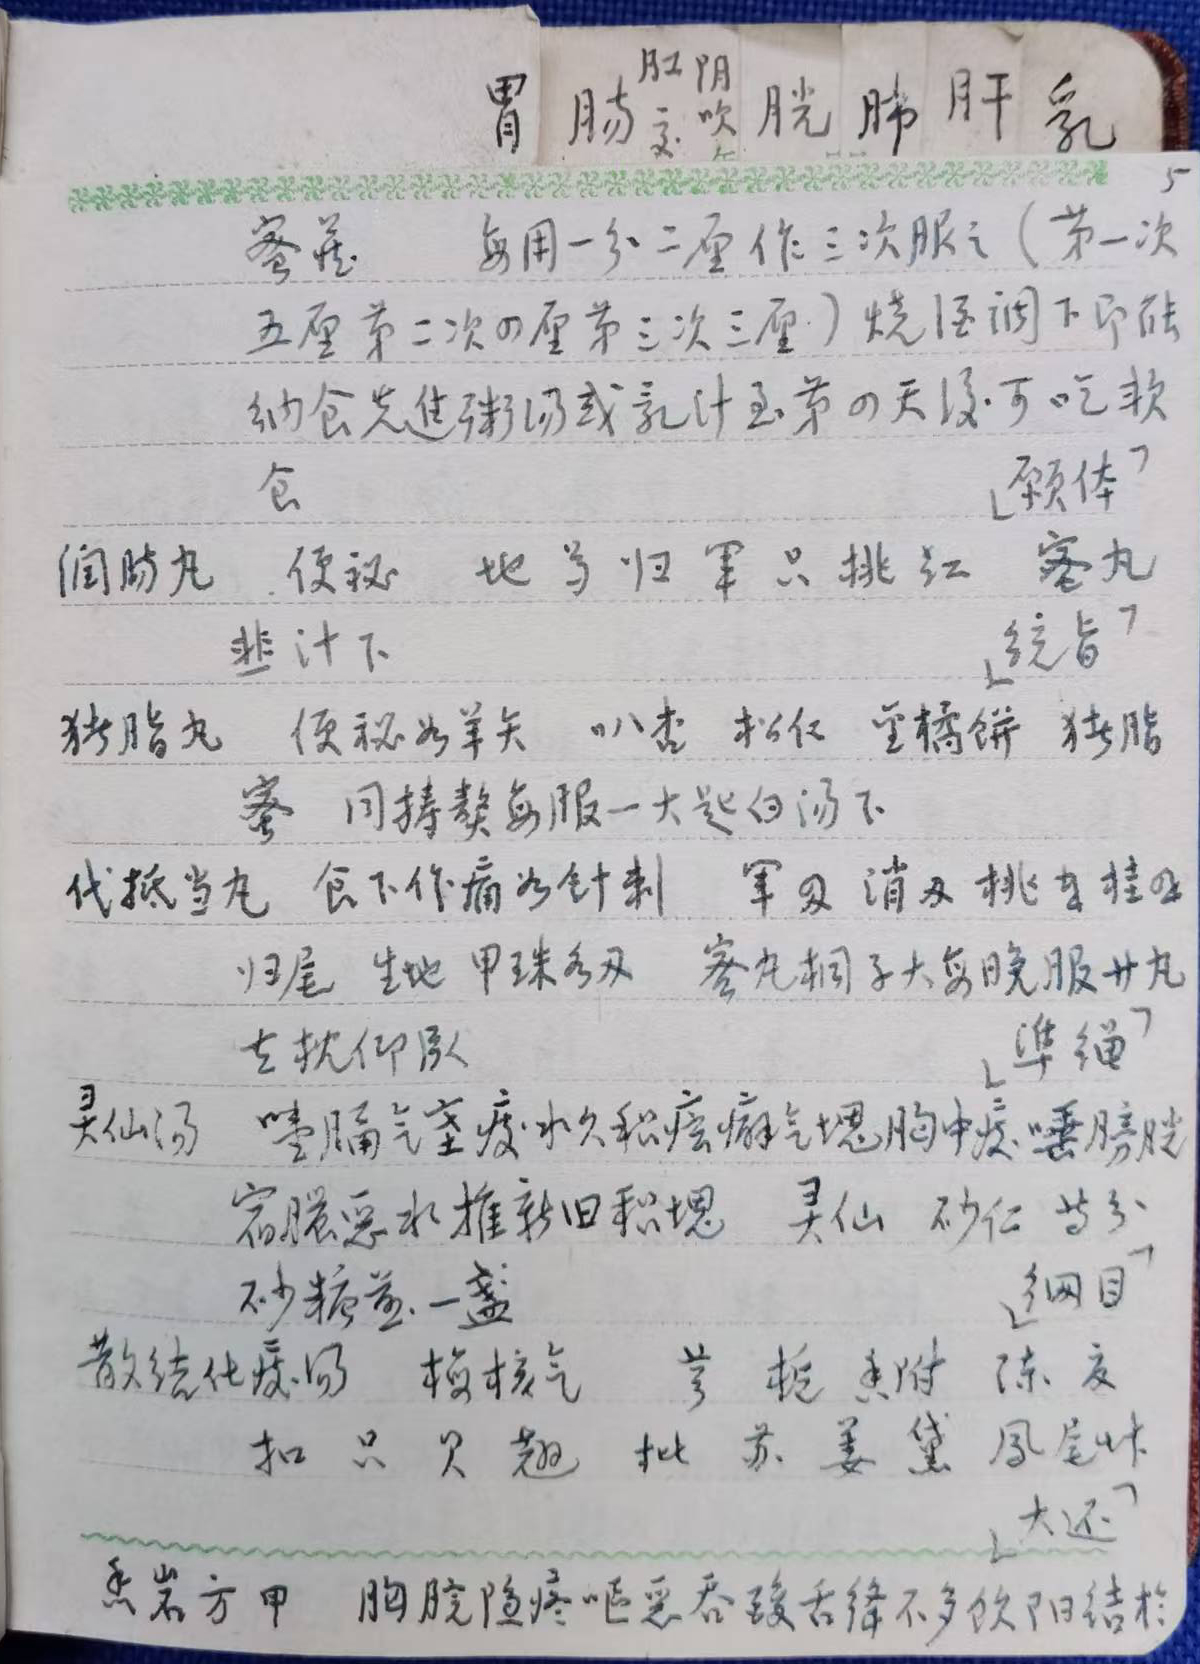 胃 肠 肛 阴吹 胱 肺 肝 乳
5
蜜 每用一分二厘作三次服之（第一次
五厘第二次四厘第三次三厘）烧酒调下即能
纳食先进粥汤或乳汁至第四天后可吃软
食 「颐体」
润肠丸 便秘 地 芍 归 军 只 桃 红 蜜丸
韭汁下 「统旨」
猪脂丸 便秘如羊矢 叭杏 松仁 金橘饼 猪脂
蜜 同捣熬每服一大匙白汤下
代抵当丸 食下作痛如针刺 军四 消又 桃 桂
归尾 生地 甲珠各又 蜜丸桐子大每晚服廿丸
去枕仰卧 「準绳」
灵仙汤 噎膈气壅痰水久积痃癖气块胸中痰唾膀胱
宿脓恶水推新旧积块 灵仙 砂仁 等分
砂糖煎一盏 「纲目」
散结化痰汤 梅核气 芩 栀 香附 陈 夏
扣 只 贝 翘 枇 苏 姜 黛 凤尾
「大还」
香岩方甲 胸脘隐疼呕恶吞酸舌绛不多饮阳结于